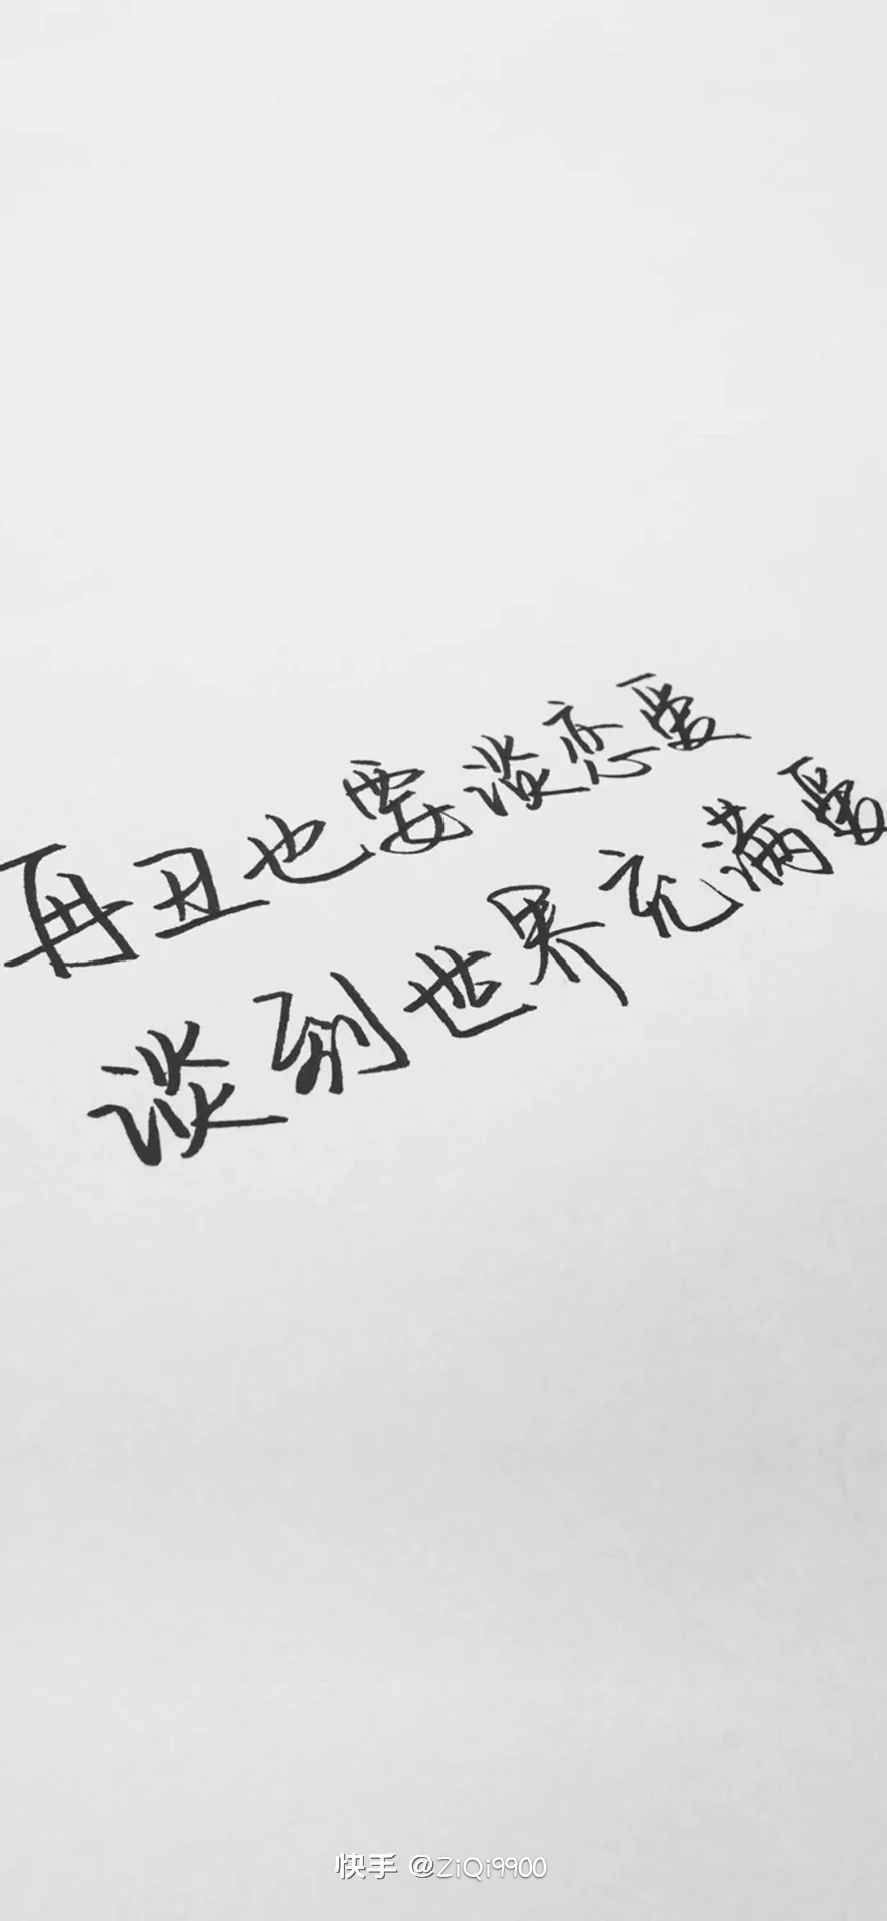 再丑也要谈恋爱
谈到世界充满爱
快手 @ZiQi9900